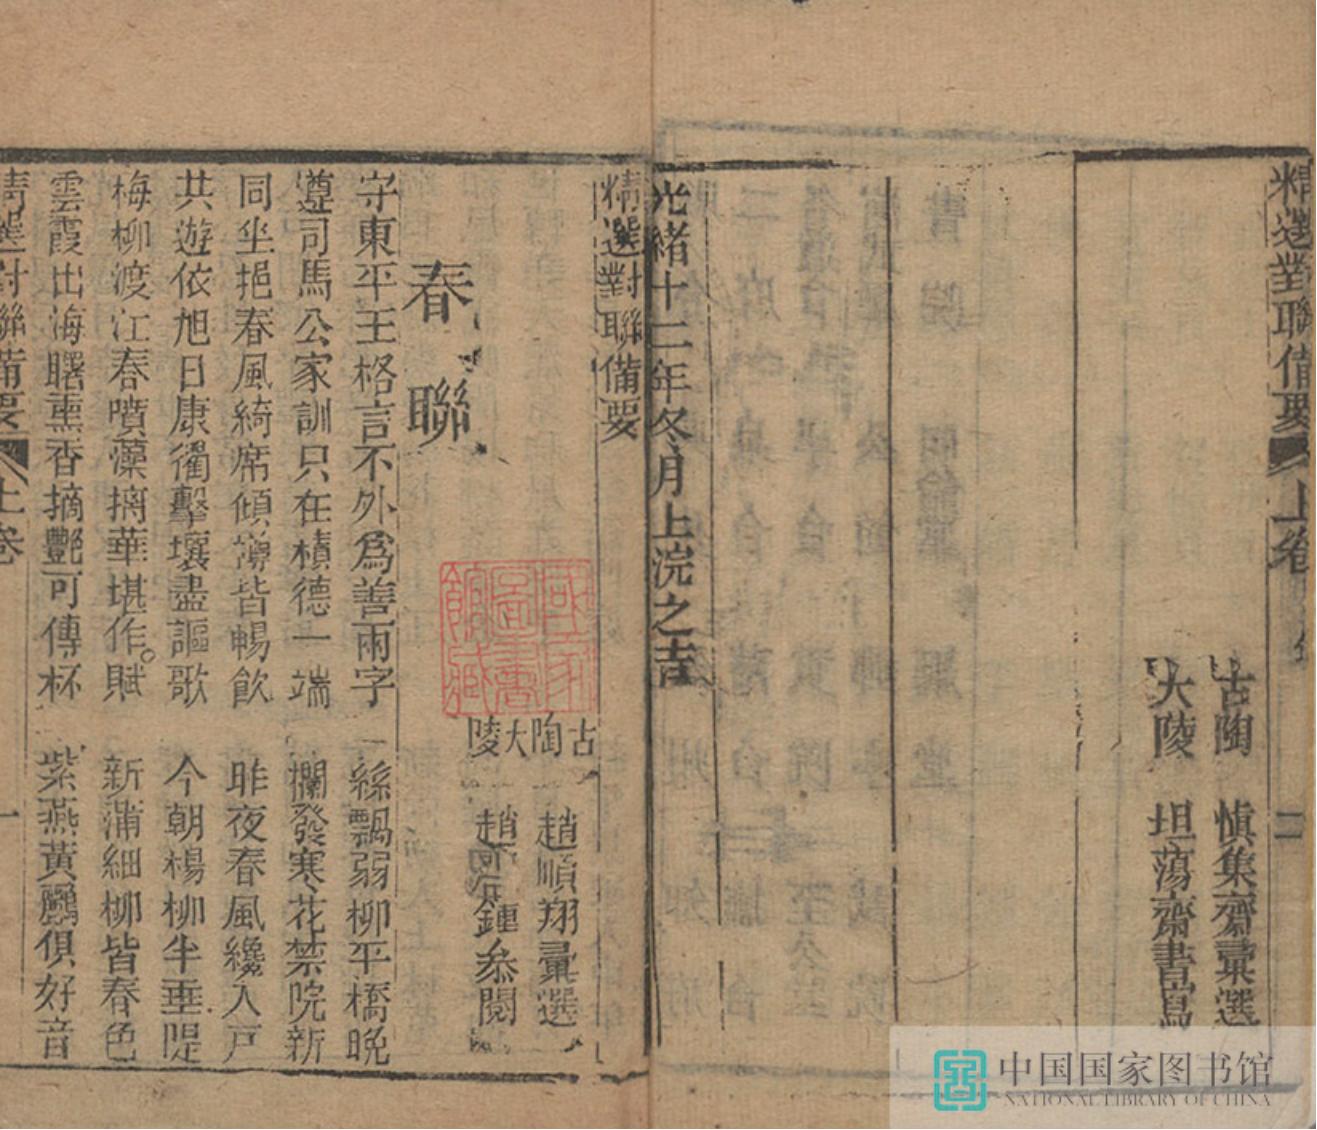 精選對聯備要 上卷 二
古陶 慎集齋彙選
大陵 坦蕩齋書寫
光緒十二年冬月上浣之吉
精選對聯備要
古陶 趙順翔彙選
大陵 鍾叅閱
國家圖書館藏
春聯
守東平王格言不外爲善兩字 一絲飄弱柳平橋晚
遵司馬公家訓只在積德一端 攔發寒花禁院新
同坐挹春風綺席傾樽皆暢飲 昨夜春風纔入戶
共遊依旭日康衢擊壤盡謳歌 今朝楊柳半垂隄
梅柳渡江春噴藻摛華堪作賦 新蒲細柳皆春色
雲霞出海曙熏香摘艷可傳杯 紫燕黃鸝俱好音
精選對聯備要 上卷 一
中国国家图书馆
NATIONAL LIBRARY OF CHINA